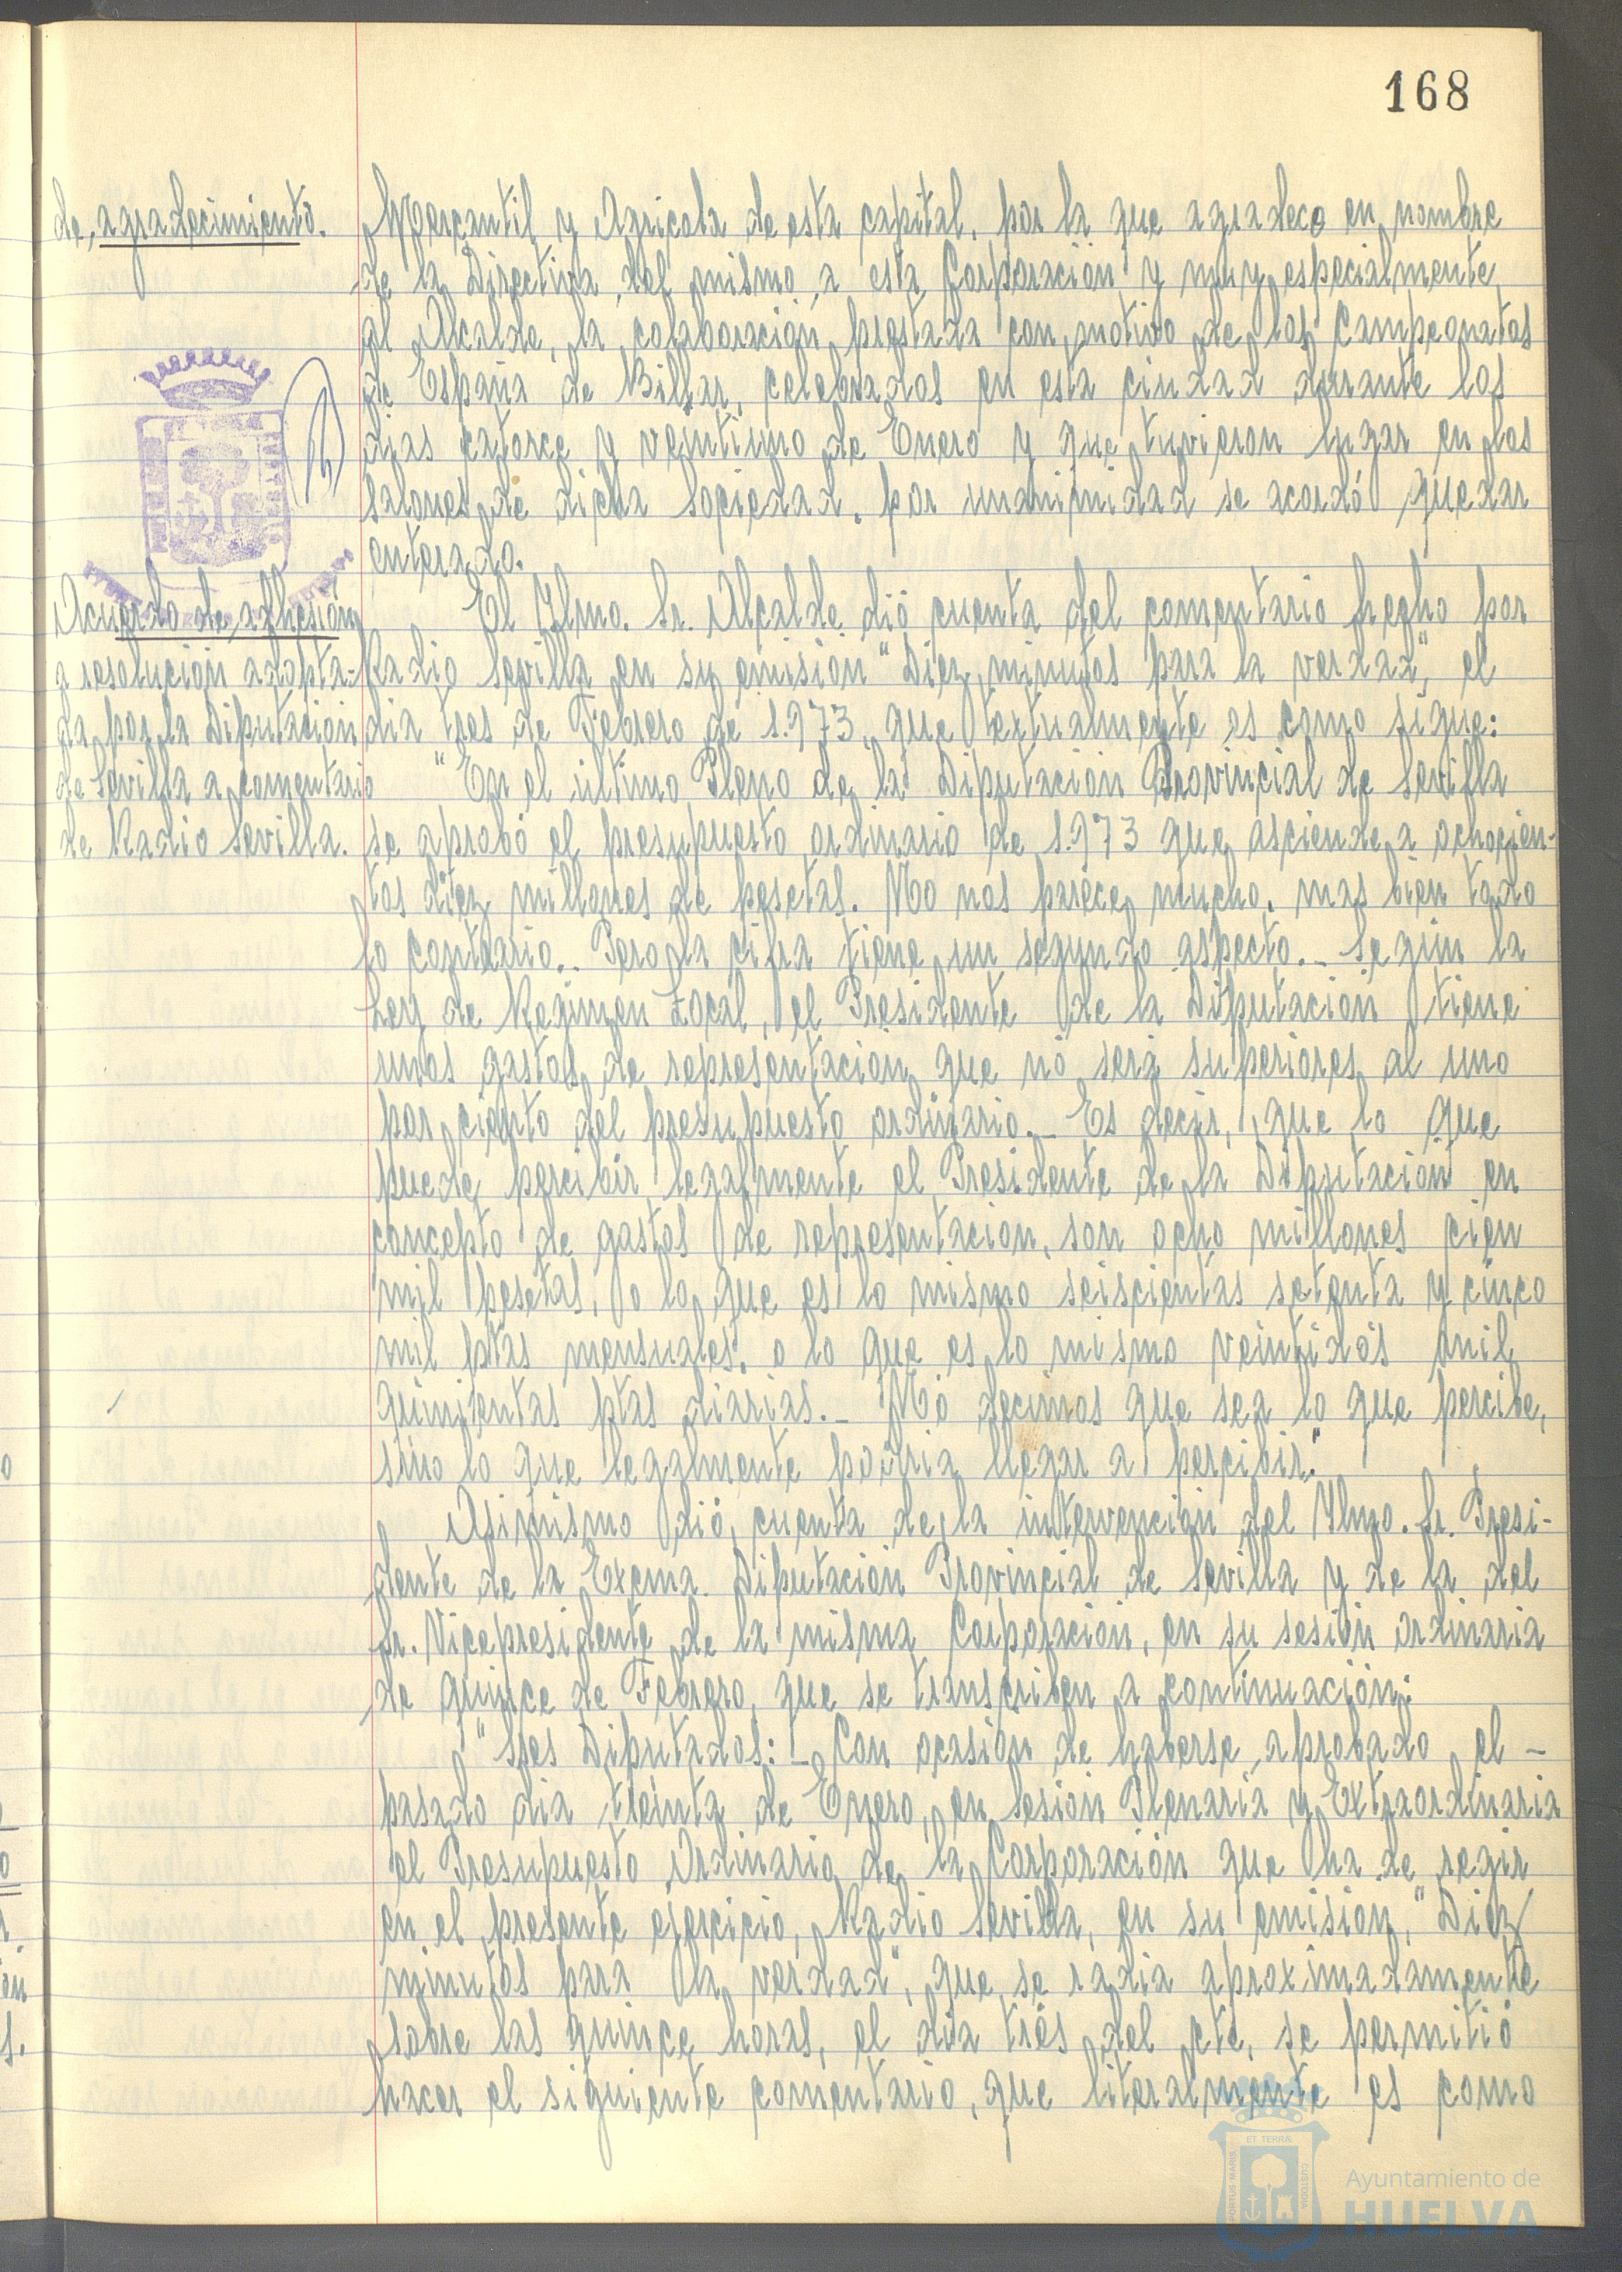 168
de agradecimiento.
Mercantil y Agricola de esta capital, por la que agradece en nombre
de la Directiva del mismo a esta Corporación y muy especialmente
al Alcalde, la colaboración prestada con motivo de los Campeonatos
de España de Billar, celebrados en esta ciudad durante los
dias catorce y veintiuno de Enero y que tuvieron lugar en los
salones de dicha Sociedad. Por unanimidad se acordó quedar
enterado.
Acuerdo de adhesión
a resolución adopta-
da por la Diputación
de Sevilla a comentario
de Radio Sevilla.
El Ilmo. Sr. Alcalde dió cuenta del comentario hecho por
Radio Sevilla en su emisión "Diez minutos para la verdad", el
dia tres de Febrero de 1.973, que textualmente es como sigue:
"En el último Pleno de la Diputación Provincial de Sevilla
se aprobó el presupuesto ordinario de 1.973 que asciende a ochocien-
tos diez millones de pesetas. No nos parece mucho, mas bien todo
lo contrario. Pero la cifra tiene un segundo aspecto.- Según la
Ley de Regimen Local, el Presidente de la Diputación tiene
unos gastos de representación que no será superiores al uno
por ciento del presupuesto ordinario.- Es decir, que lo que
puede percibir legalmente el Presidente de la Diputación en
concepto de gastos de representación, son ocho millones cien
mil pesetas, o lo que es lo mismo seiscientas setenta y cinco
mil ptas mensuales, o lo que es lo mismo veintidós mil
quinientas ptas diarias.- No decimos que sea lo que percibe,
sino lo que legalmente podria llegar a percibir".
Asimismo dió cuenta de la intervención del Ilmo. Sr. Presi-
dente de la Excma. Diputación Provincial de Sevilla y de la del
Sr. Vicepresidente de la misma Corporación, en su sesión ordinaria
de quince de Febrero, que se transcriben a continuación:
"Sres Diputados:- Con ocasión de haberse aprobado el -
pasado dia treinta de Enero, en Sesión Plenaria y Extraordinaria
el Presupuesto Ordinario de la Corporación que ha de regir
en el presente ejercicio, Radio Sevilla, en su emisión, "Diez
minutos para la verdad", que se radia aproximadamente
sobre las quince horas, el dia trés del cte, se permitió
hacer el siguiente comentario, que literalmente es como
PORTUS MARIS ET TERRÆ CUSTODIA
Ayuntamiento de
HUELVA